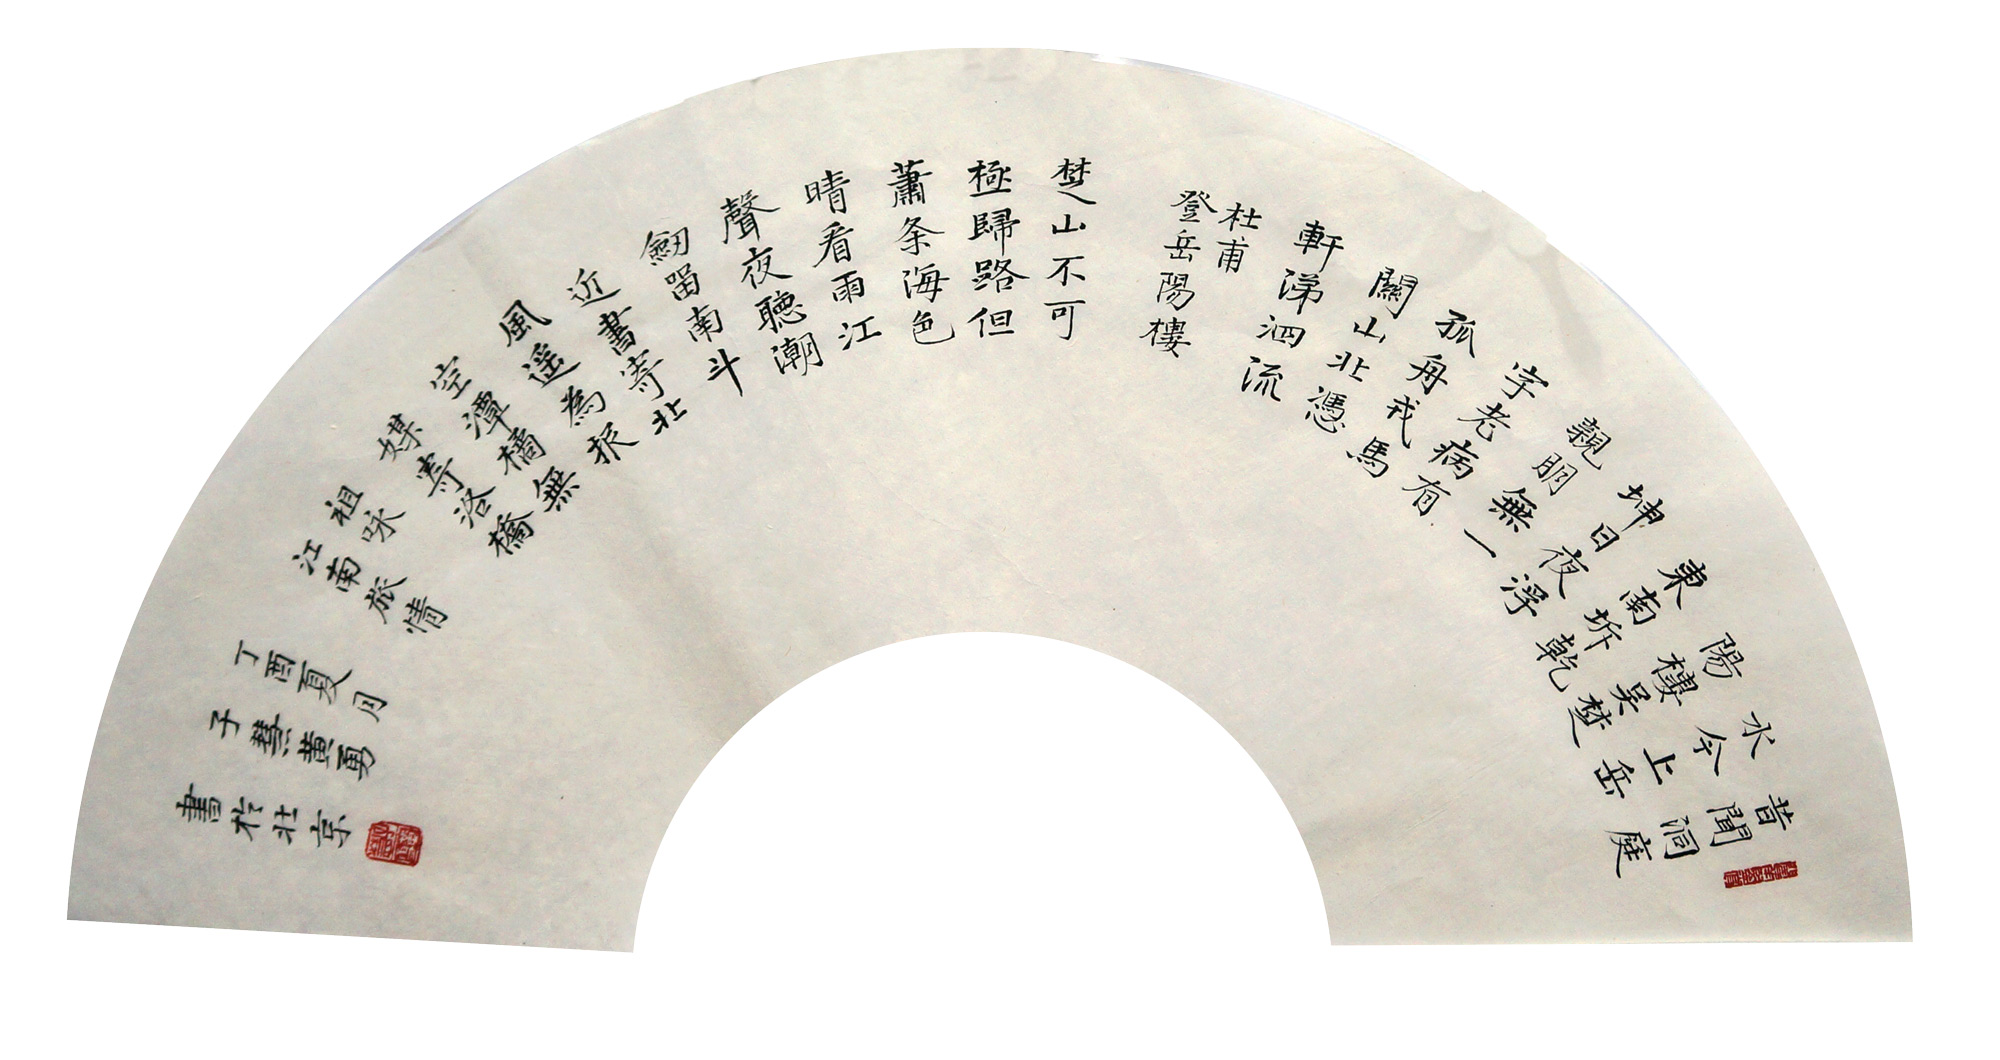 昔聞洞庭
水今上岳
陽樓吳楚
東南坼乾
坤日夜浮
親朋無一
字老病有
孤舟戎馬
關山北憑
軒涕泗流
杜甫
登岳陽樓
楚山不可
極歸路但
蕭条海色
晴看雨江
聲夜聽潮
劔留南斗
近書寄北
風遥為报
空潭橘無
媒寄洛橋
祖咏
江南旅情
丁酉夏月
子黄勇
書於北京